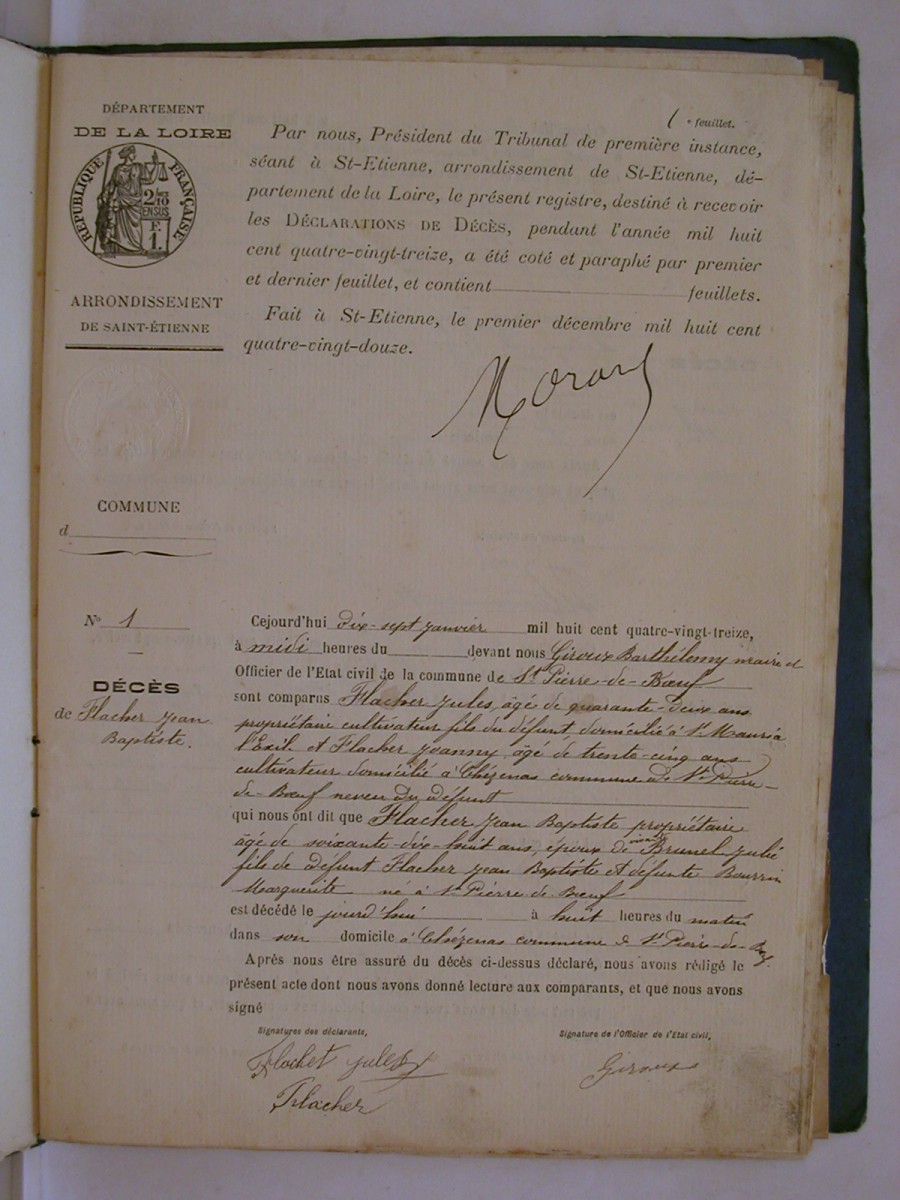 DÉPARTEMENT
DE LA LOIRE
RÉPUBLIQUE FRANÇAISE
2/10
EN SUS
F.
1.
ARRONDISSEMENT
DE SAINT-ÉTIENNE
COMMUNE
d
1 e feuillet.
Par nous, Président du Tribunal de première instance,
séant à St-Etienne, arrondissement de St-Etienne, dé-
partement de la Loire, le présent registre, destiné à recevoir
les DÉCLARATIONS DE DÉCÈS, pendant l'année mil huit
cent quatre-vingt-treize, a été coté et paraphé par premier
et dernier feuillet, et contient feuillets.
Fait à St-Etienne, le premier décembre mil huit cent
quatre-vingt-douze.
N° 1
DÉCÈS
de Flacher Jean
Baptiste.
Cejourd'hui dix-sept janvier mil huit cent quatre-vingt-treize,
à midi heures du devant nous Giroux Barthélemy maire et
Officier de l'Etat civil de la commune de St Pierre-de-Bœuf
sont comparus Flacher Jules, âgé de quarante-deux ans
propriétaire cultivateur fils du défunt, domicilié à St Maurice
l'Exil et Flacher Joanny âgé de trente-cinq ans
cultivateur domicilié à Chézenas commune de St Pierre-
de-Bœuf neveu du défunt
qui nous ont dit que Flacher Jean Baptiste propriétaire
âgé de soixante-dix-huit ans, époux de Brunel Julie
fils de défunt Flacher Jean Baptiste et défunte Bourrin
Marguerite né à St Pierre de Bœuf
est décédé le jourd'hui à huit heures du matin
dans son domicile à Chézenas commune de St Pierre-de-Bœuf
Après nous être assuré du décès ci-dessus déclaré, nous avons rédigé le
présent acte dont nous avons donné lecture aux comparants, et que nous avons
signé
Signatures des déclarants, Signature de l'Officier de l'Etat civil,
Flachet Jules Giroux
Flacher